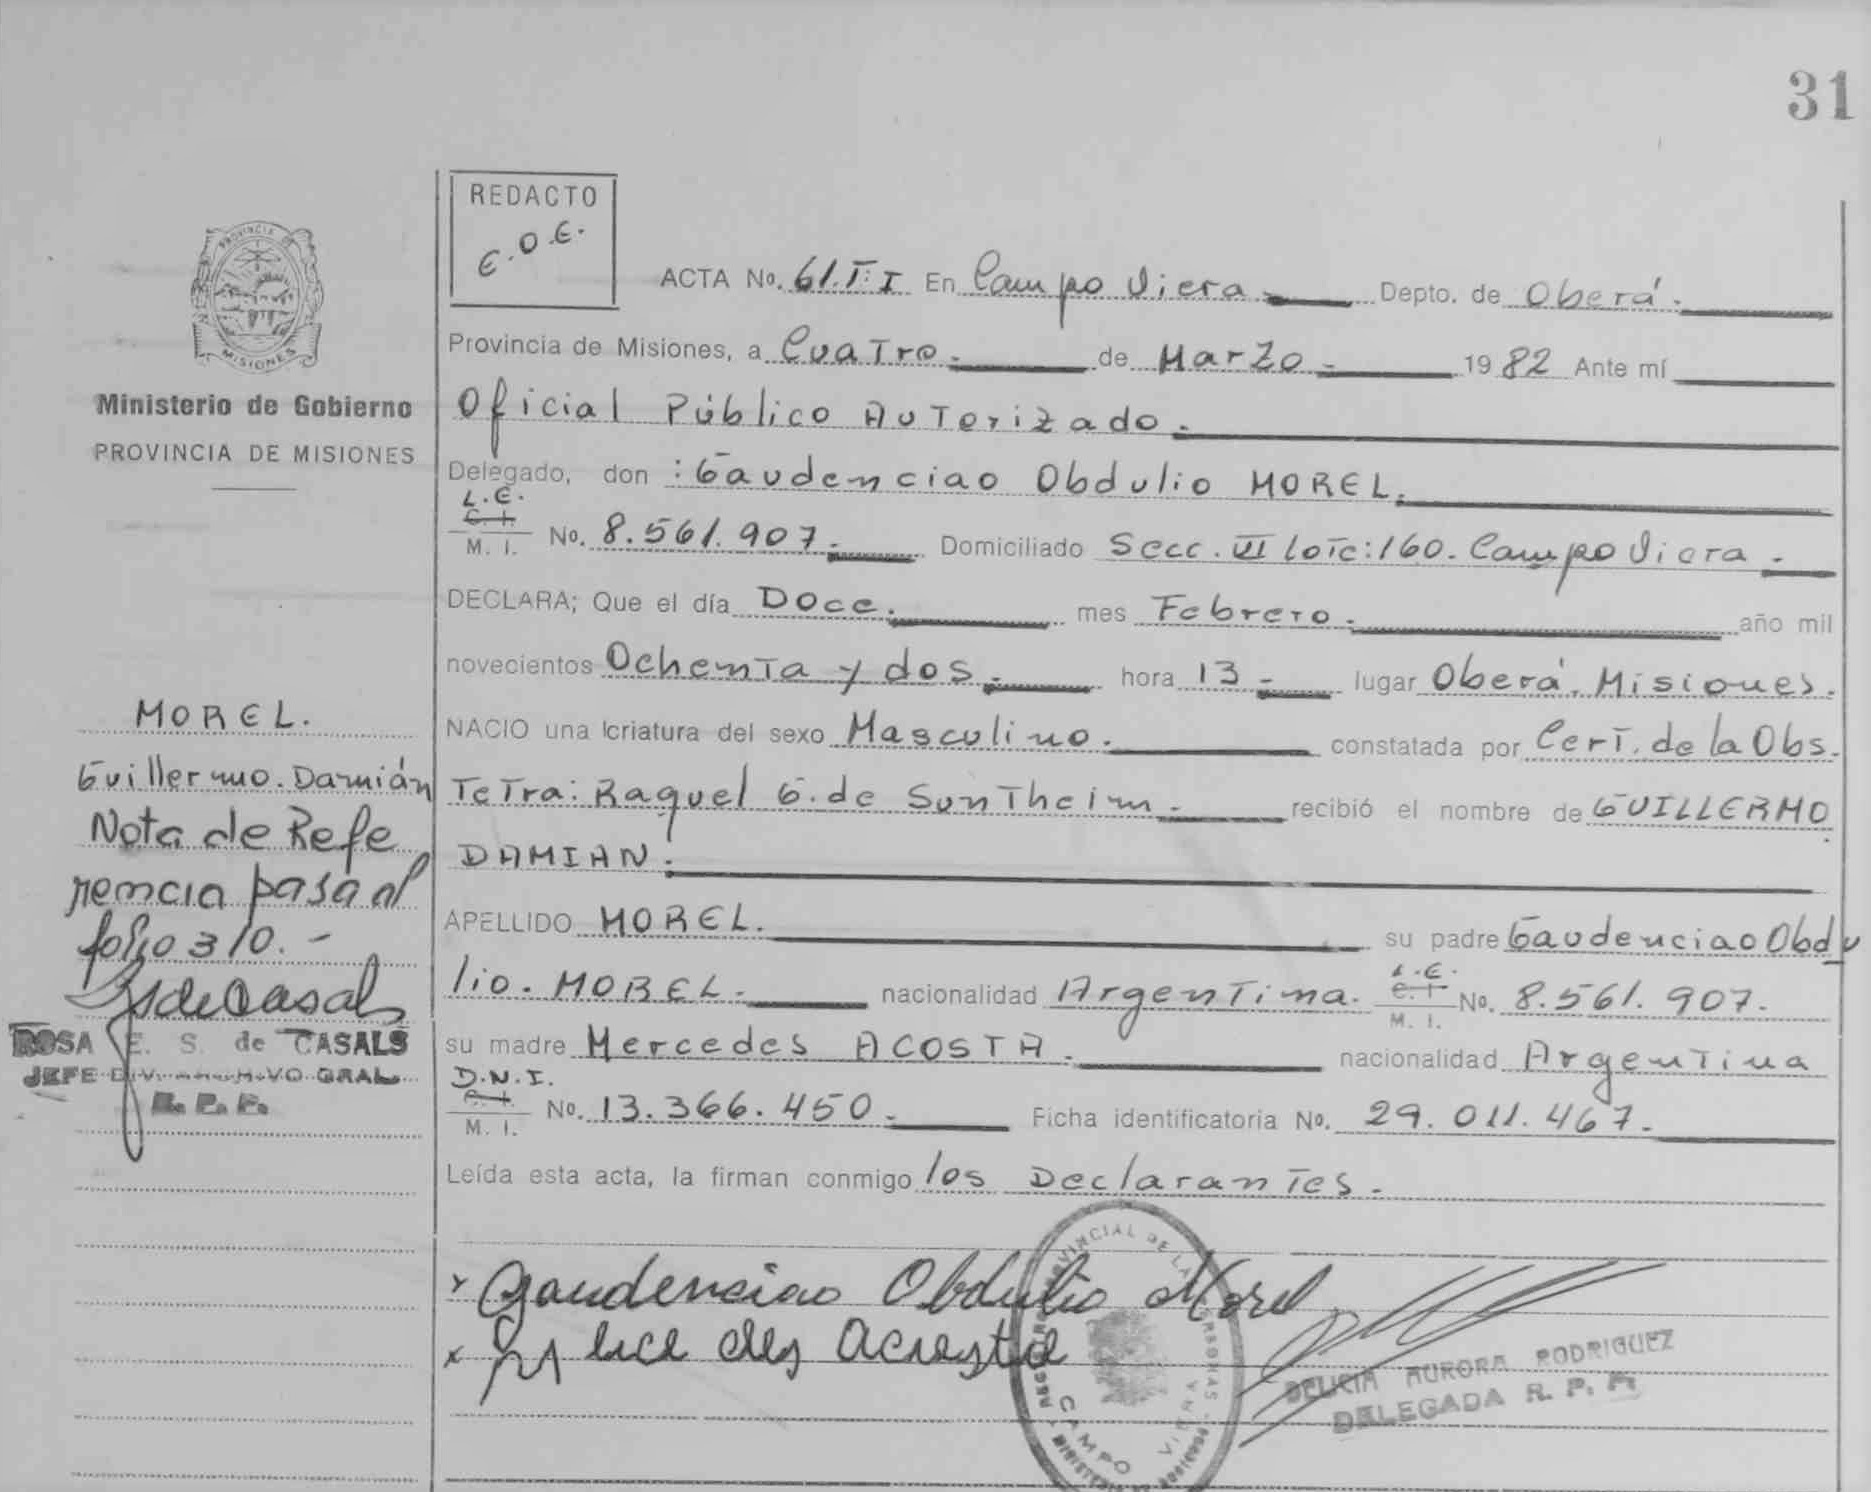 31
REDACTO
E.O.E.
ACTA No. 61.T:I En Campo Viera Depto. de Oberá.
Provincia de Misiones, a Cuatro. de Marzo 1982 Ante mí
Oficial Público Autorizado.
Delegado, don : Gaudenciao Obdulio MOREL.
L.E.
C. I.
M. I. No. 8.561.907. Domiciliado Secc. VI lote:160. Campo Viera.
DECLARA; Que el día Doce. mes Febrero. año mil
novecientos Ochenta y dos. hora 13 lugar Oberá. Misiones.
NACIO una criatura del sexo Masculino. constatada por Cert. de la Obs.
Tetra: Raquel G. de Suntheim. recibió el nombre de GUILLERMO
DAMIAN.
APELLIDO MOREL. su padre Gaudenciao Obdu
lio. MOREL. nacionalidad Argentina. L.E. C. I. M. I. No. 8.561.907.
su madre Mercedes ACOSTA. nacionalidad Argentina
D.N.I.
C. I.
M. I. No. 13.366.450. Ficha identificatoria No. 29.011.467.
Leída esta acta, la firman conmigo los Declarantes.
Gaudenciao Obdulio Morel
PROVINCIA DE
MISIONES
Ministerio de Gobierno
PROVINCIA DE MISIONES
MOREL.
Guillermo. Damián
Nota de Refe
rencia pasa al
folio 310.-
ROSA E. S. de CASALS
JEFE DIV. ARCHIVO GRAL.
R. P. P.
CAMPO VIERA
DELICIA AURORA RODRIGUEZ
DELEGADA R. P. P.